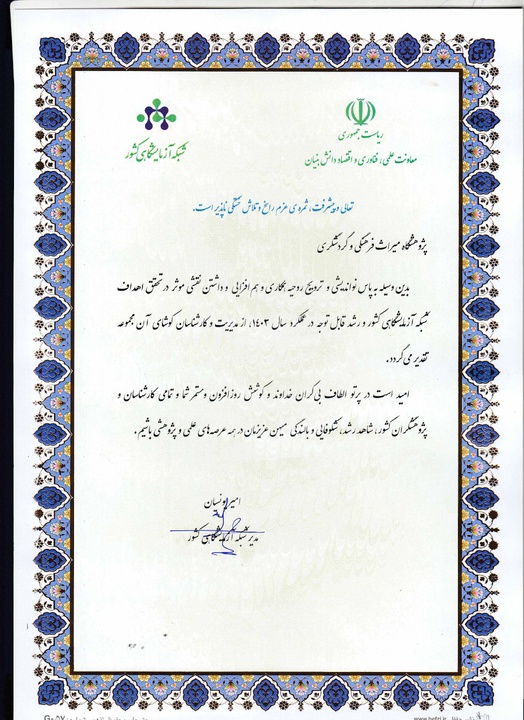 ریاست جمهوری
معاونت علمی، فناوری و اقتصاد دانش بنیان
شبکه آزمایشگاهی کشور
تعالی و پیشرفت، ثمره‌ی عزم راسخ و تلاش خستگی ناپذیر است.
پژوهشگاه میراث فرهنگی و گردشگری
بدین وسیله به پاس نواندیشی و ترویج روحیه همکاری و هم افزایی و داشتن نقشی موثر در تحقق اهداف
شبکه آزمایشگاهی کشور و رشد قابل توجه در عملکرد سال ۱۴۰۳، از مدیریت و کارشناسان کوشای آن مجموعه
تقدیر می گردد.
امید است در پرتو الطاف بی کران خداوند و کوشش روزافزون و مستمر شما و تمامی کارشناسان و
پژوهشگران کشور، شاهد رشد، شکوفایی و بالندگی میهن عزیزمان در همه عرصه های علمی و پژوهشی باشیم.
امیر
مدیر شبکه آزمایشگاهی کشور